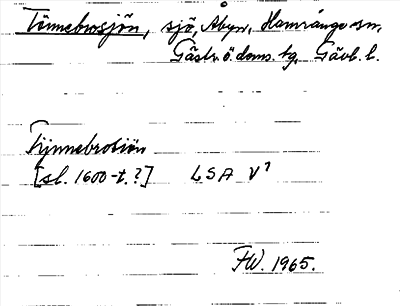 Tönnebrosjön, sjö, Åbyn, Hamrånge sn,
Gästr. ö. doms. tg, Gävl. l.
Tijnnebrosiön
[sl. 1600-t.?] LSA V?
FW. 1965.